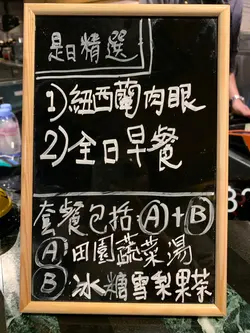 是日精選
1)紐西蘭肉眼
2)全日早餐
套餐包括:Ⓐ+Ⓑ
Ⓐ:田園蔬菜湯
Ⓑ:冰糖雪梨果茶